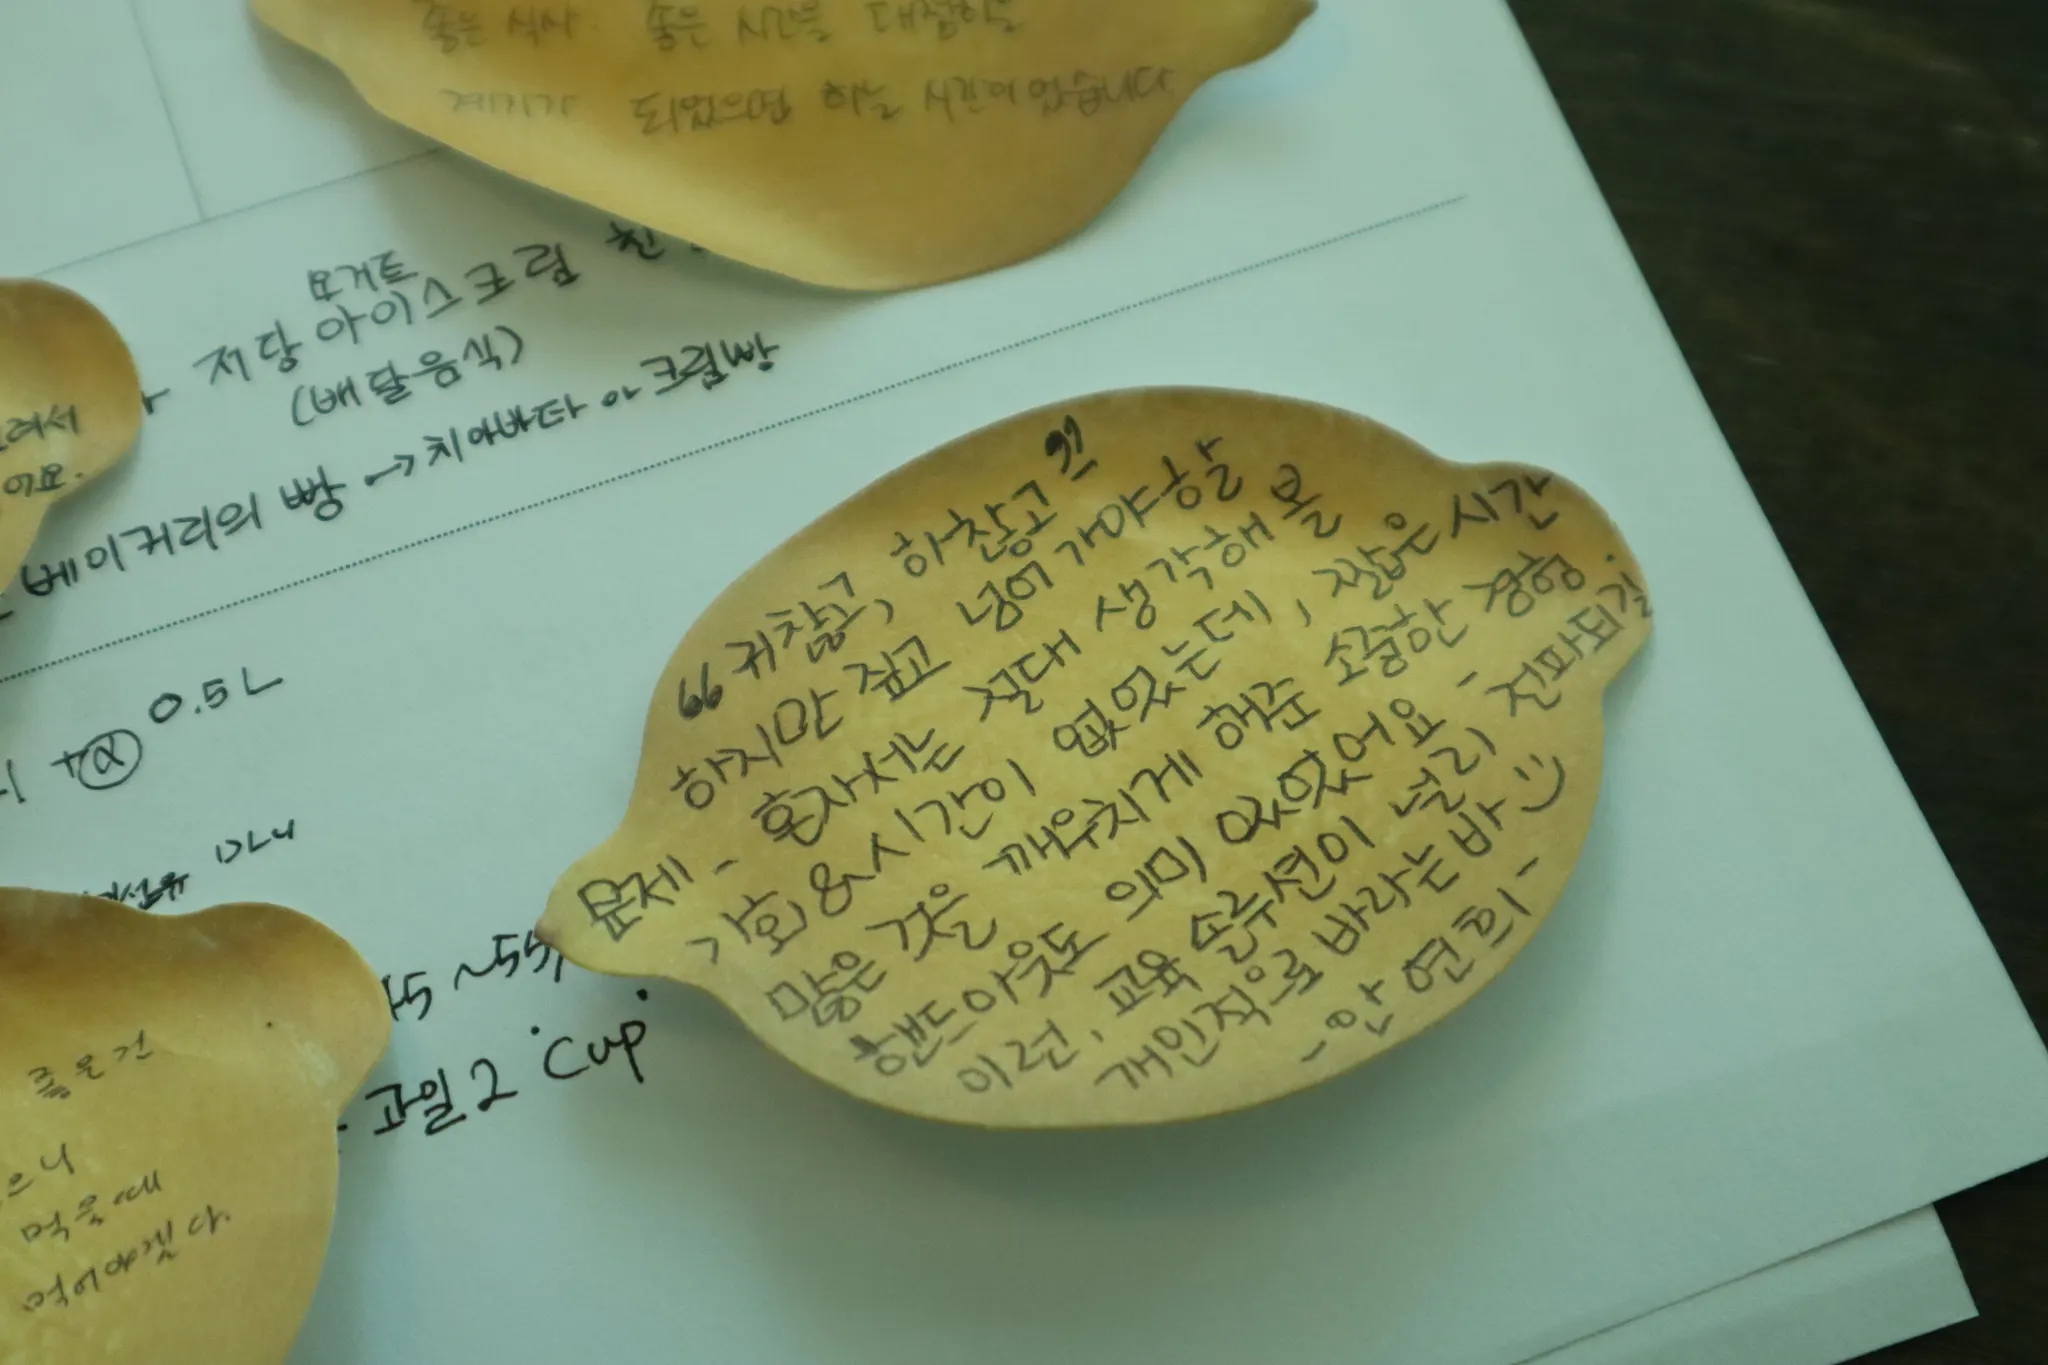 좋은 식사. 좋은 시간을
계기가 되었으면 하는 시간이었습니다
요거트
저당 아이스크림
(배달음식)
베이커리의 빵 → 치아바타 or 크림빵
+ⓐ 0.5L
45~55
과일 2 Cup
"귀찮고, 하찮고"
하지만 짚고 넘어가야할
문제 - 혼자서는 절대 생각해 볼
기회&시간이 없었는데, 짧은 시간
많은 것을 깨우치게 해준 소중한 경험.
핸드아웃도 의미 있었어요 -
이런, 교육 솔루션이 널리 전파되길
개인적으로 바라는바 :)
- 안연희 -
려서
어요.
좋은건
으니
먹을때
먹어야겠다.